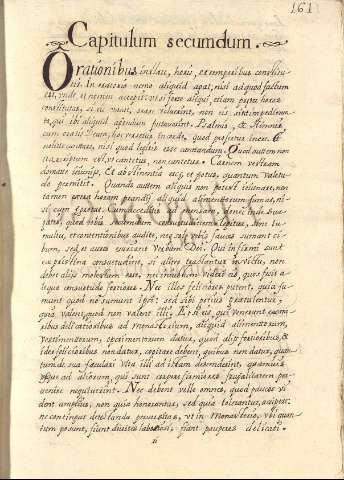 161
Capitulum secundum.
Orationibus instate, horis, et temporibus constitu
tis. In oratorio nemo aliquid agat, nisi ad quod factum
est, unde et nomen accepit: ut si forte aliqui, etiam præter horas
constitutas, si eis vacat, orare voluerint, non eis sint impedimen
to, qui ibi aliquid agendum putaverint. Psalmis, et Hymnis
cum oratis Deum, hoc versetur in corde, quod profertur in ore. Et
nolite cantare, nisi quod legitis esse cantandum. Quod autem non
ita scriptum est, ut cantetur, non cantetur. Carnem vestram
domate ieiuniis, Et abstinentia escæ, et potus, quantum valetu
do permittit. Quando autem aliquis non potest ieiunare, non
tamen extra horam prandij aliquid alimentorum sumat, ni
si cum ægrotat. Cum acceditis ad mensam, donec inde surga
tis, quod vobis secundum consuetudinem legitur, sine tu
multu, et contentionibus audite, nec solæ vobis fauces sumant ci
bum, sed et aures esuriant Verbum Dei. Qui infirmi sunt
ex pristina consuetudine, si aliter tractantur in victu, non
debet alijs molestum esse, nec iniustum videri eis, quos facit a
lia consuetudo fortiores. Nec illos feliciores putent, quia su
munt quod non sumunt ipsi: sed sibi potius gratulentur,
quia valent, quod non valent illi. Et si eis, qui venerunt ex mo
ribus delicatioribus ad monasterium, aliquid alimentorum,
vestimentorum, operimentorum datur, quod alijs fortioribus, et
ideo felicioribus non datur, cogitare debent, quibus non datur, quan
tum de sua sæculari vita illi ad istam descenderint, quamvis
usque ad aliorum, qui sunt corpore firmiores frugalitatem per
venire nequiverint. Nec debent velle omnes, quod paucos vi
dent amplius, non quia honorantur, sed quia tolerantur, accipere:
ne contingat detestanda perversitas, ut in Monasterio, ubi quan
tum possunt, fiunt divites laboriosi, fiant pauperes delicati.